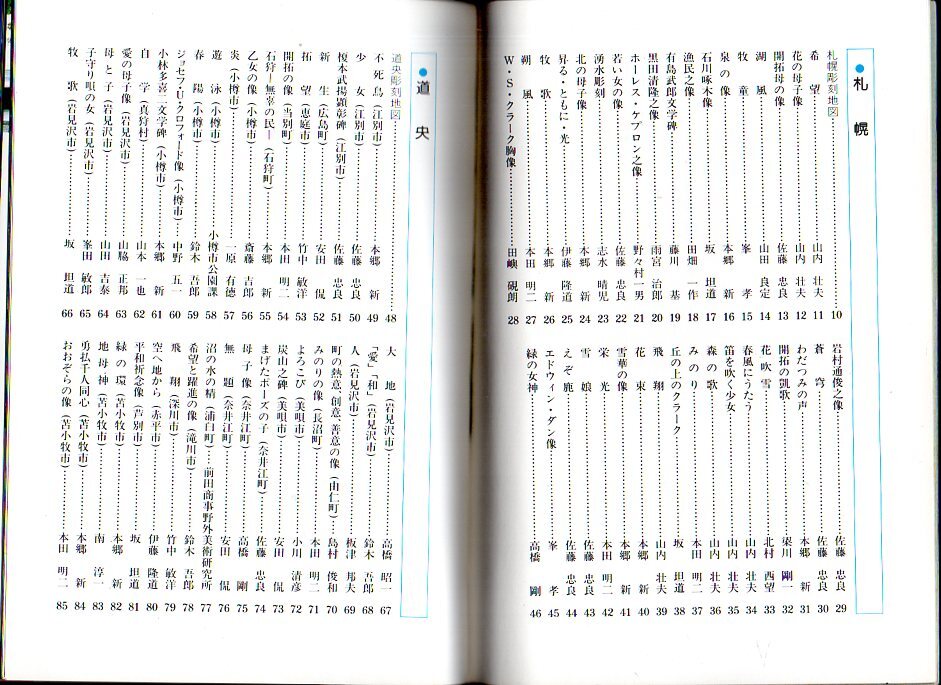 ●札幌
札幌彫刻地図……10
希望……山内壮夫 11
花の母子像……山内壮夫 12
開拓母の像……佐藤忠良 13
湖風……山田良定 14
牧童……峯孝 15
泉の像……本郷新 16
石川啄木像……坂坦道 17
漁民之像……田畑一作 18
有島武郎文学碑……藤川基 19
黒田清隆之像……雨宮治郎 20
ホーレス・ケプロン之像……野々村一男 21
若い女の像……佐藤忠良 22
湧水彫刻……志水晴児 23
北の母子像……本郷新 24
昇る・ともに・光……伊藤隆道 25
牧歌……本郷新 26
朔風……本田明二 27
W・S・クラーク胸像……田嶼碩朗 28
岩村通俊之像……佐藤忠良 29
蒼穹……佐藤忠良 30
わだつみの声……本郷新 31
開拓の凱歌……梁川剛一 32
花吹雪……北村西望 33
春風にうたう……山内壮夫 34
笛を吹く少女……山内壮夫 35
森の歌……山内壮夫 36
みのり……本田明二 37
丘の上のクラーク……坂坦道 38
飛翔……山内壮夫 39
花束……本郷新 40
雪華の像……本郷新 41
栄光……本田明二 42
雪娘……佐藤忠良 43
えぞ鹿……佐藤忠良 44
エドウィン・ダン像……峯孝 45
緑の女神……高橋剛 46
●道央
道央彫刻地図……48
不死鳥(江別市)……本郷新 49
少女(江別市)……佐藤忠良 50
榎本武揚顕彰碑(江別市)……佐藤忠良 51
新生(広島町)……安田侃 52
拓望(恵庭市)……竹中敏洋 53
開拓の像(当別町)……本田明二 54
石狩―無辜の民―(石狩町)……本郷新 55
乙女の像(小樽市)……斎藤吉郎 56
炎(小樽市)……一原有徳 57
遊泳(小樽市)……小樽市公園課 58
春陽(小樽市)……鈴木吾郎 59
ジョセフ・U・クロフォード像(小樽市)……中野五一 60
小林多喜二文学碑(小樽市)……本郷新 61
自学(真狩村)……山本一也 62
愛の母子像(岩見沢市)……山脇正邦 63
母と子(岩見沢市)……山田吉泰 64
子守り唄の女(岩見沢市)……峯田敏郎 65
牧歌(岩見沢市)……坂坦道 66
大地(岩見沢市)……高橋昭一 67
「愛」「和」(岩見沢市)……鈴木吾郎 68
人(岩見沢市)……板津邦夫 69
町の熱意、創意、善意の像(由仁町)……島村俊和 70
みのりの像(長沼町)……本田明二 71
よろこび(美唄市)……小川清彦 72
炭山之碑(美唄市)……安田侃 73
まげたポーズの子(奈井江町)……佐藤忠良 74
母子像(奈井江町)……高橋剛 75
無題(奈井江町)……安田侃 76
沼の水の精(浦臼町)……前田商事野外美術研究所 77
希望と躍進の像(滝川市)……鈴木吾郎 78
飛翔(深川市)……竹中敏洋 79
空へ地から(赤平市)……伊藤隆道 80
平和祈念像(芦別市)……坂坦道 81
緑の環(苫小牧市)……本郷新 82
地母神(苫小牧市)……南淳一 83
勇払千人同心(苫小牧市)……本郷新 84
おおぞらの像(苫小牧市)……本田明二 85